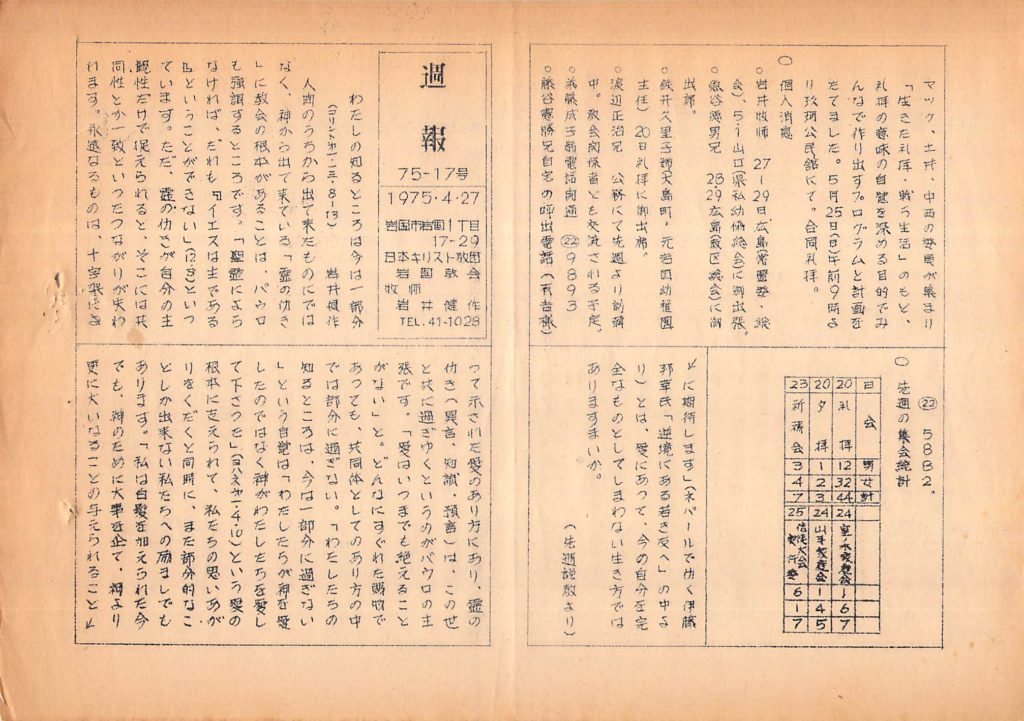 週報
75-17号
1975・4・27
岩国市岩国1丁目
17-29
日本キリスト教団
岩国教会
牧師
岩井健作
TEL.41-1028
わたしの知るところは今は一部分
(コリント第一・一三・8-13) 岩井健作
人間のうちから出て来たものにでは
なく、神から出て来ている「霊の働き
」に教会の根本があることは、パウロ
も強調するところです。「聖霊によら
なければ、だれも『イエスは主である
』ということができない」(12・3)といっ
ています。ただ、霊の働きが自分の主
観性だけで捉えられると、そこには共
同性とか一致といったつながりが失わ
れます。永遠なるものは、十字架によ
って示された愛のあり方にあり、霊の
働き(異言、知識、預言)は、この世
と共に過ぎゆくというのがパウロの主
張です。「愛はいつまでも絶えること
がない」と。どんなにすぐれた賜物で
あっても、共同体としてのあり方の中
では部分に過ぎない。「わたしたちの
知るところは、今は一部分に過ぎない
」という自覚は「わたしたちが神を愛
したのではなく神がわたしたちを愛し
て下さった」(ヨハネ第一・4・10)という愛の
根本に支えられて、私たちの思いあが
りをくだくと同時に、また部分的なこ
としか出来ない私たちへの励ましでも
あります。「私は白髪を加えられた今
でも、神のために大事を企て、神より
更に大いなることの与えられること
に期待します」(ネパールで働く伊藤
邦幸氏「逆境にある若き友へ」の中よ
り)とは、愛にあって、今の自分を完
全なものとしてしまわない生き方では
ありますまいか。
(先週説教より)
マック、土井、中西の委員が集まり
「生きた礼拝・戦う生活」のもと、
礼拝の意味の自覚を深める目的でみ
んなで作り出すプログラムと計画を
たてました。5月25日(日)午前9時よ
り玖珂公民館にて。合同礼拝。
○個人消息
○岩井牧師 27~29日、広島(常置委・総
会)、5・1山口(県私幼係総会)に御出張。
○魚谷徳男兄 28・29広島(教区総会)に御
出席。
○鉄井久里子姉(大島町。元岩国幼稚園
主任) 20日礼拝に御出席。
○渡辺正治兄 公務にて先週より訪韓
中。教会関係者とも交流される予定。
○兼厳成子姉電話開通 (22)9893
○藤谷憲勝兄自宅の呼出電話(有吉様)
(22)5882。
○先週の集会統計
日 会 男 女 計
20 礼拝 12 32 44
20 夕拝 1 2 3
23 祈祷会 3 4 7
24 室ノ木家庭会 1 6 7
24 山手家庭会 1 4 5
25 信徒大会実行委 6 1 7